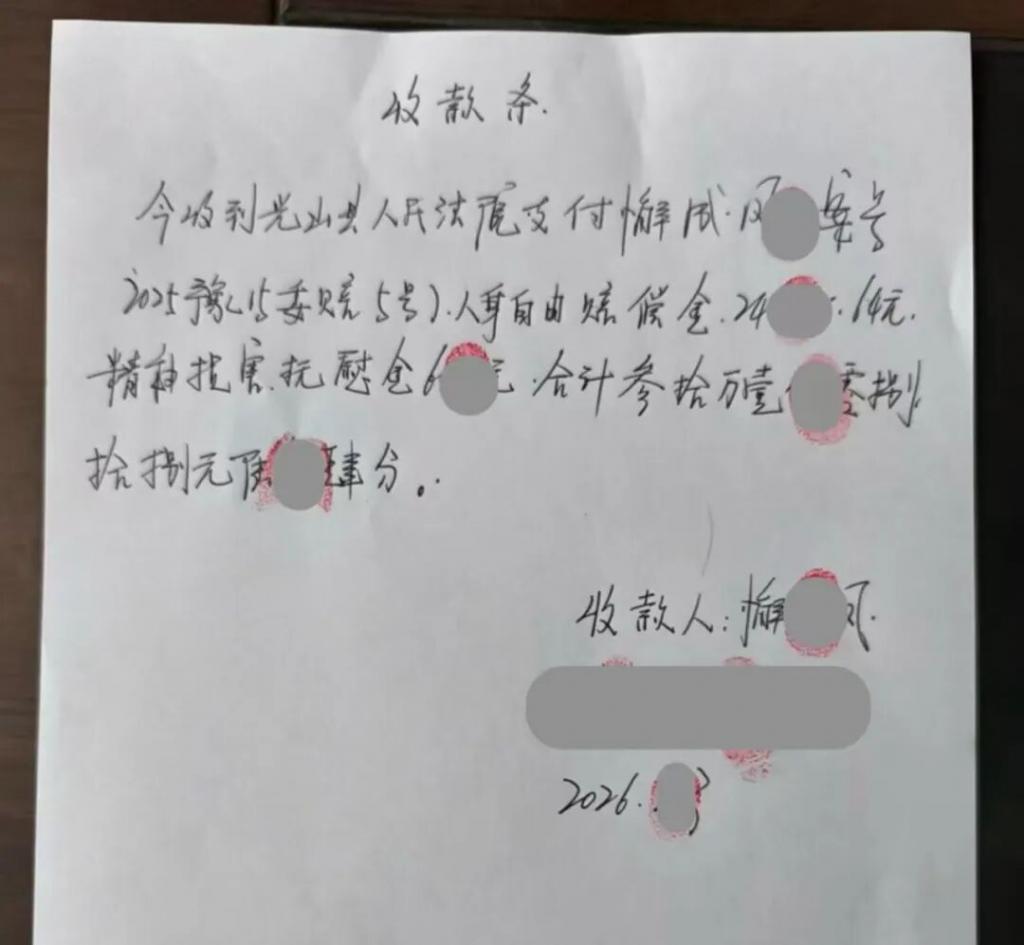 收款条.
今收到光山县人民法院支付懈成.凤 案号
2025豫(15委赔5号).人身自由赔偿金.24 .64元.
精神损害.抚慰金6 元.合计参拾万壹 零捌
拾捌元陆 肆分。.
收款人:懈 凤.
2026. 3